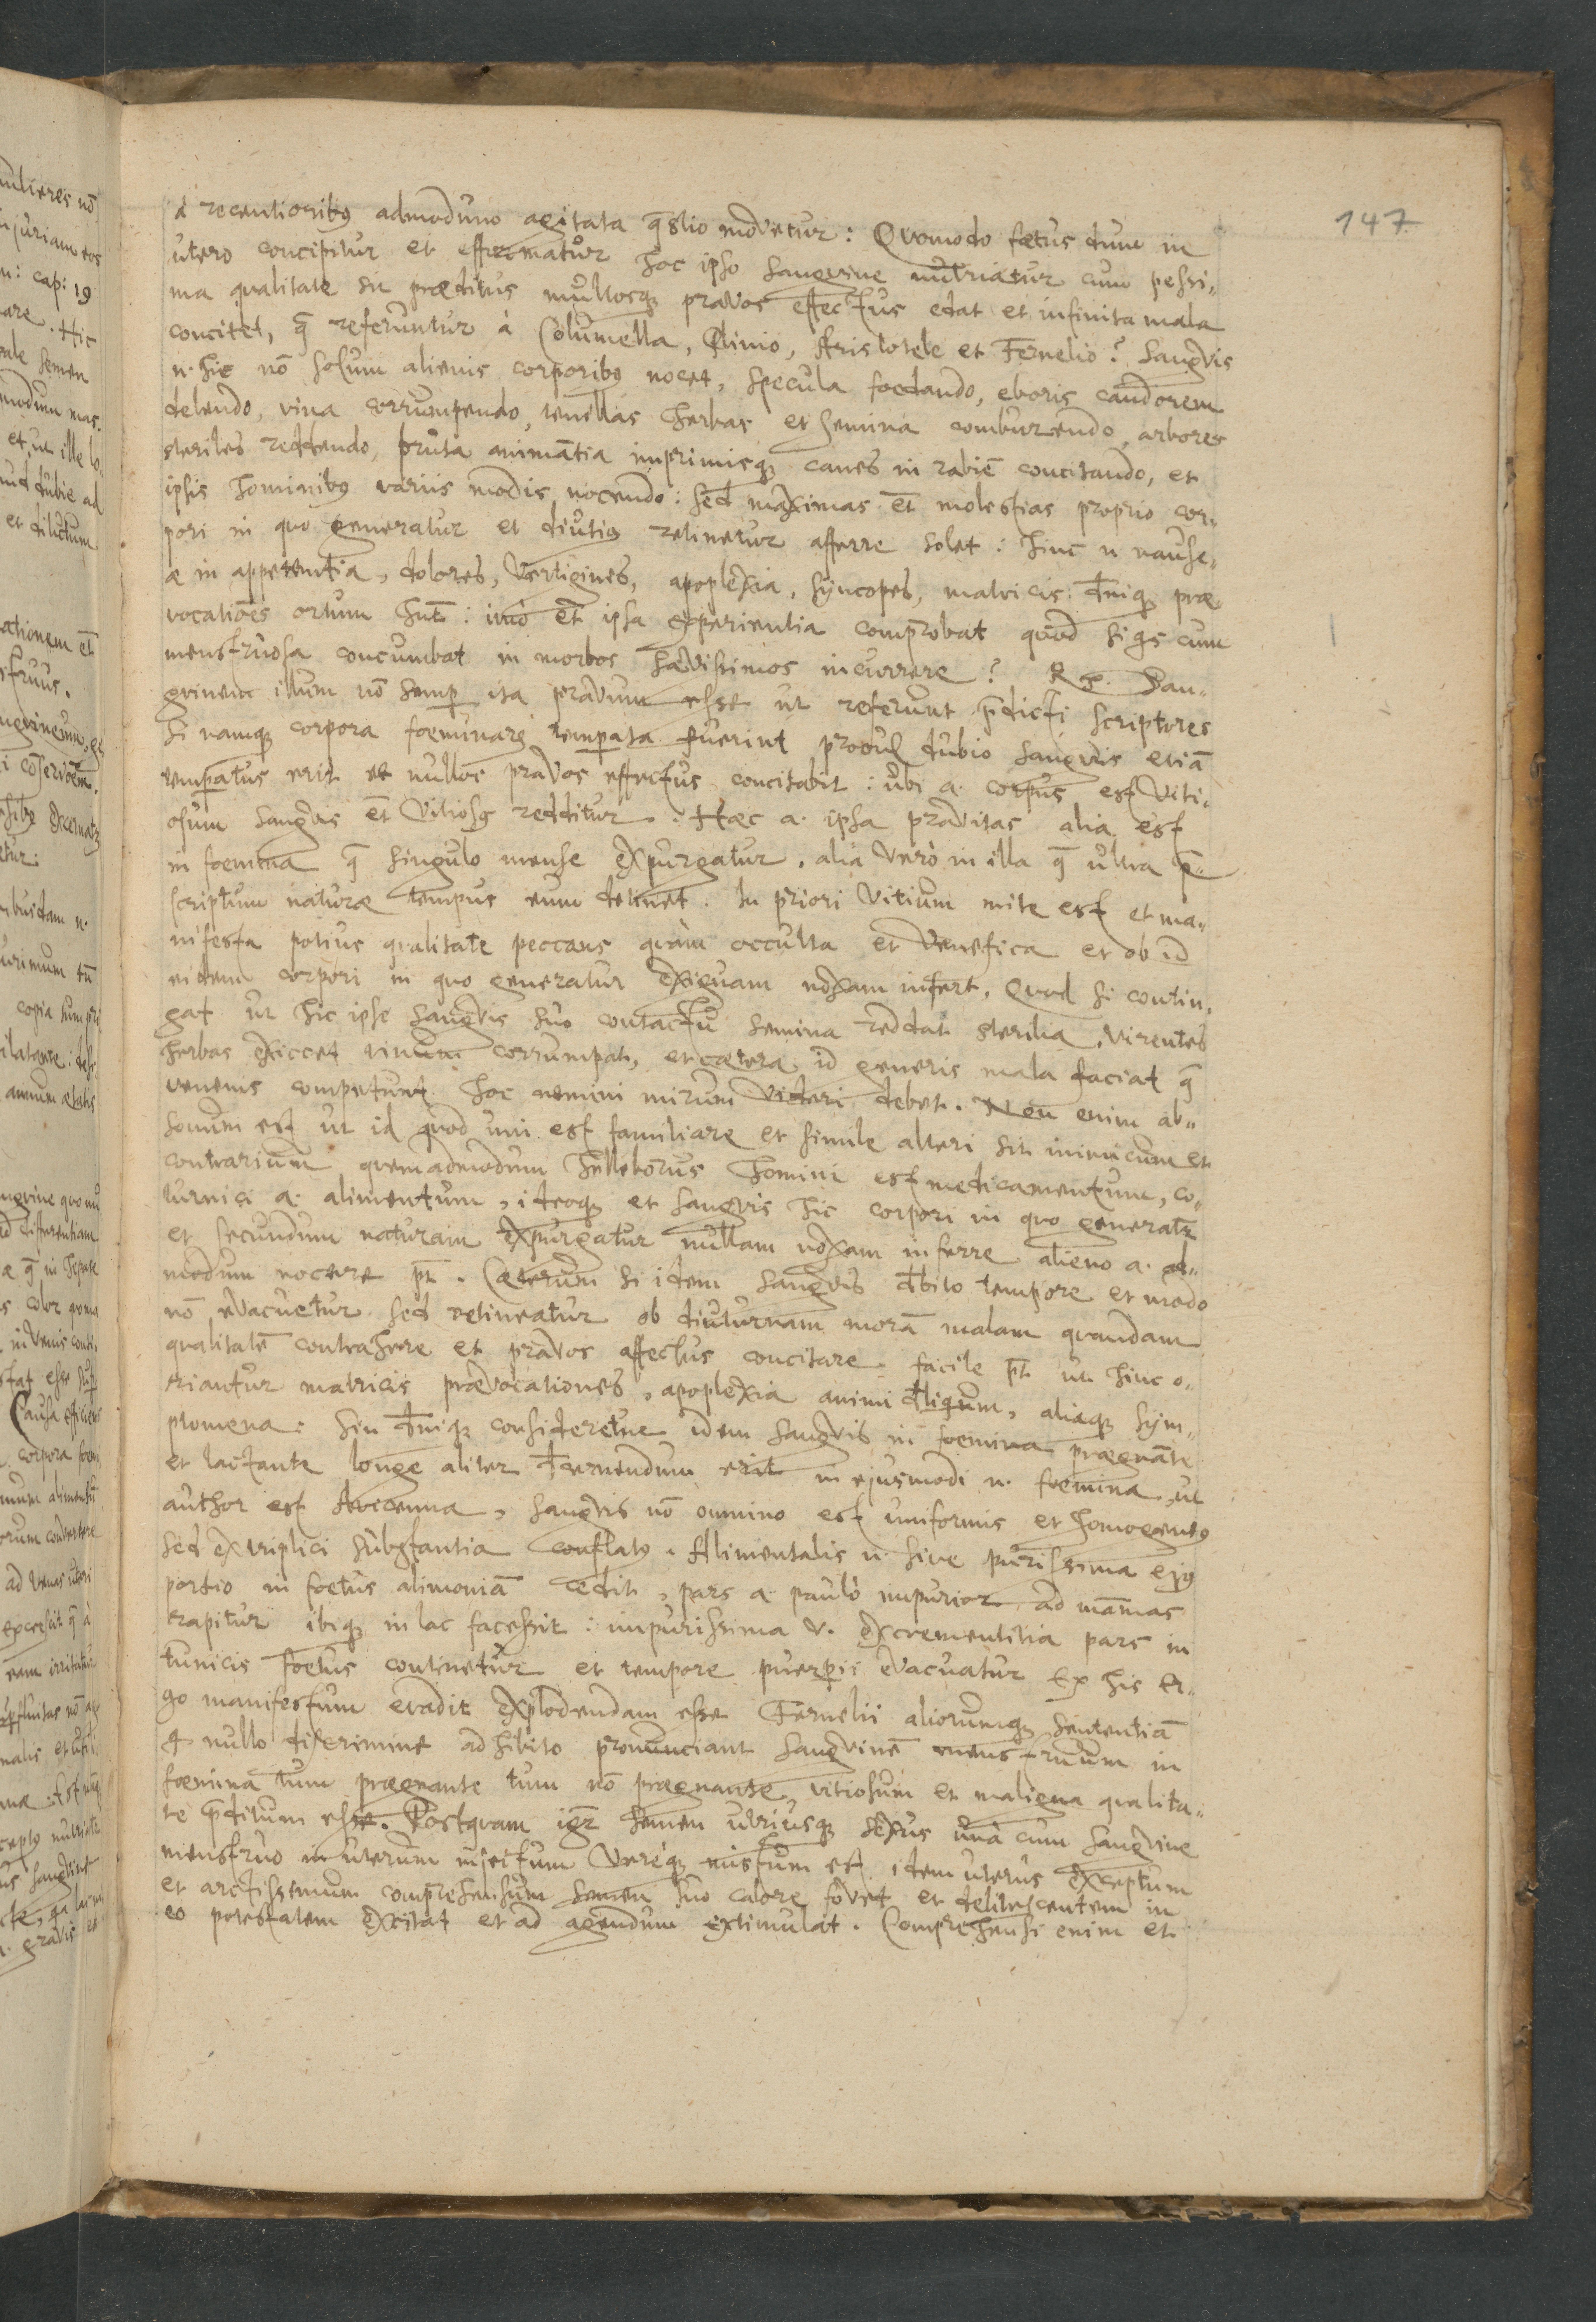 147
à recentioribus admodum agitata quæstio movetur: Quomodo fœtus dum in
utero concipitur et efformatur hoc ipso sangvine nutriatur cum pessi-
ma qualitate sit præditus multosque pravos effectus edat et infinita mala
concitet, quæ referuntur à Columella, Plinio, Aristotele et Fernelio? Sangvis
n. hic nõ solum alienis corporibus nocet, specula foedando, eboris candorem
delendo, vina corrumpendo, tenellas herbas et semina comburendo, arbores
steriles reddendo, bruta animãtia inprimisque canes in rabiẽ concitando, et
ipsis hominibus variis modis nocendo: sed maximas et̃ molestias proprio cor-
pori in quo generatur et diutius retinetur afferre solet: hinc n. nause-
æ inappetentia, dolores, vertigines, apoplexia, syncopes, matricis deniq; præ
vocatiões ortum hñt: imò et̃ ipsa experientia comprobat quod si qs cum
menstruosa concumbat in morbos sævissimos incurrere? Rx. San-
gvinem illum nõ semper ita pravum esse ut referunt p̃dicti scriptores
si namque corpora foeminarum temperata fuerint procul dubio sangvis etiã
temperatus erit et nullos pravos effectus concitabit: ubi a. corpus est viti-
osum sangvis et̃ vitiosus redditur. Hæc a. ipsa pravitas alia est
in foemina q̃ singulo mense expurgatur, alia verò in illa q̃ ultra p̃-
scriptum naturæ tempus eum detinet. In priori vitium mite est et ma-
nifesta potius qualitate peccans quàm occulta et venefica et ob id
eidem corpori in quo generatur exiguam noxam infert. Quod si contin-
gat ut hic ipse sangvis suo contactu semina reddat sterilia, virentes
herbas exiccet vinum corrumpat, et cætera id generis mala faciat q̃
venenis competunt hoc nemini mirum videri debet. Non enim ab-
sonum est ut id quod uni est familiare et simile alteri sit inimicum et
contrarium quemadmodum helleborus homini est medicamentum, co-
turnici a. alimentum, ideoque et sangvis hic corpori in quo generatur
et secundum naturam expurgatur nullam noxam inferre alieno a. ad-
modum nocere pt̃. Cæterum si idem sangvis debito tempore et modo
nõ evacuetur sed retineatur ob diuturnam morã malam quandam
qualitatẽ contrahere et pravos affectus concitare facile pt̃ ut hinc o-
riantur matricis prævocationes, apoplexia animi deliquium, aliaque sym-
ptomena: Sin deniq; consideretur idem sangvis in foemina prægnãte
et lactante longe aliter decernendum erit in ejusmodi n. foemina, ut
author est Avicenna, sangvis nõ omnino est uniformis et homogeneus
sed ex triplici substantia conflatus. Alimentalis n. sive purissima ejus
portio in foetus alimoniã cedit, pars a. paulò impurior ad mãmas
rapitur ibique in lac facessit: impurissima v. excrementitia pars in
tunicis foetus continetur et tempore puerperii evacuatur Ex his er-
go manifestum evadit explodendam esse Fernelii aliorumque sententiã
q nullo discrimine adhibito pronunciant sangvinẽ menstruum in
foemina tum prægnante tum nõ prægnante, vitiosum et maligna qualita-
te p̃ditum esse. Postquam igr̃ semen utriusque sexus unà cum sangvine
menstruo in uterum injectum veréque mistum est idem uterus exceptum
et arctissimum comprehensum semen suo calore fovet et delitescentem in
eo potestatem excitat et ad agendum extimulat. Comprehensi enim et